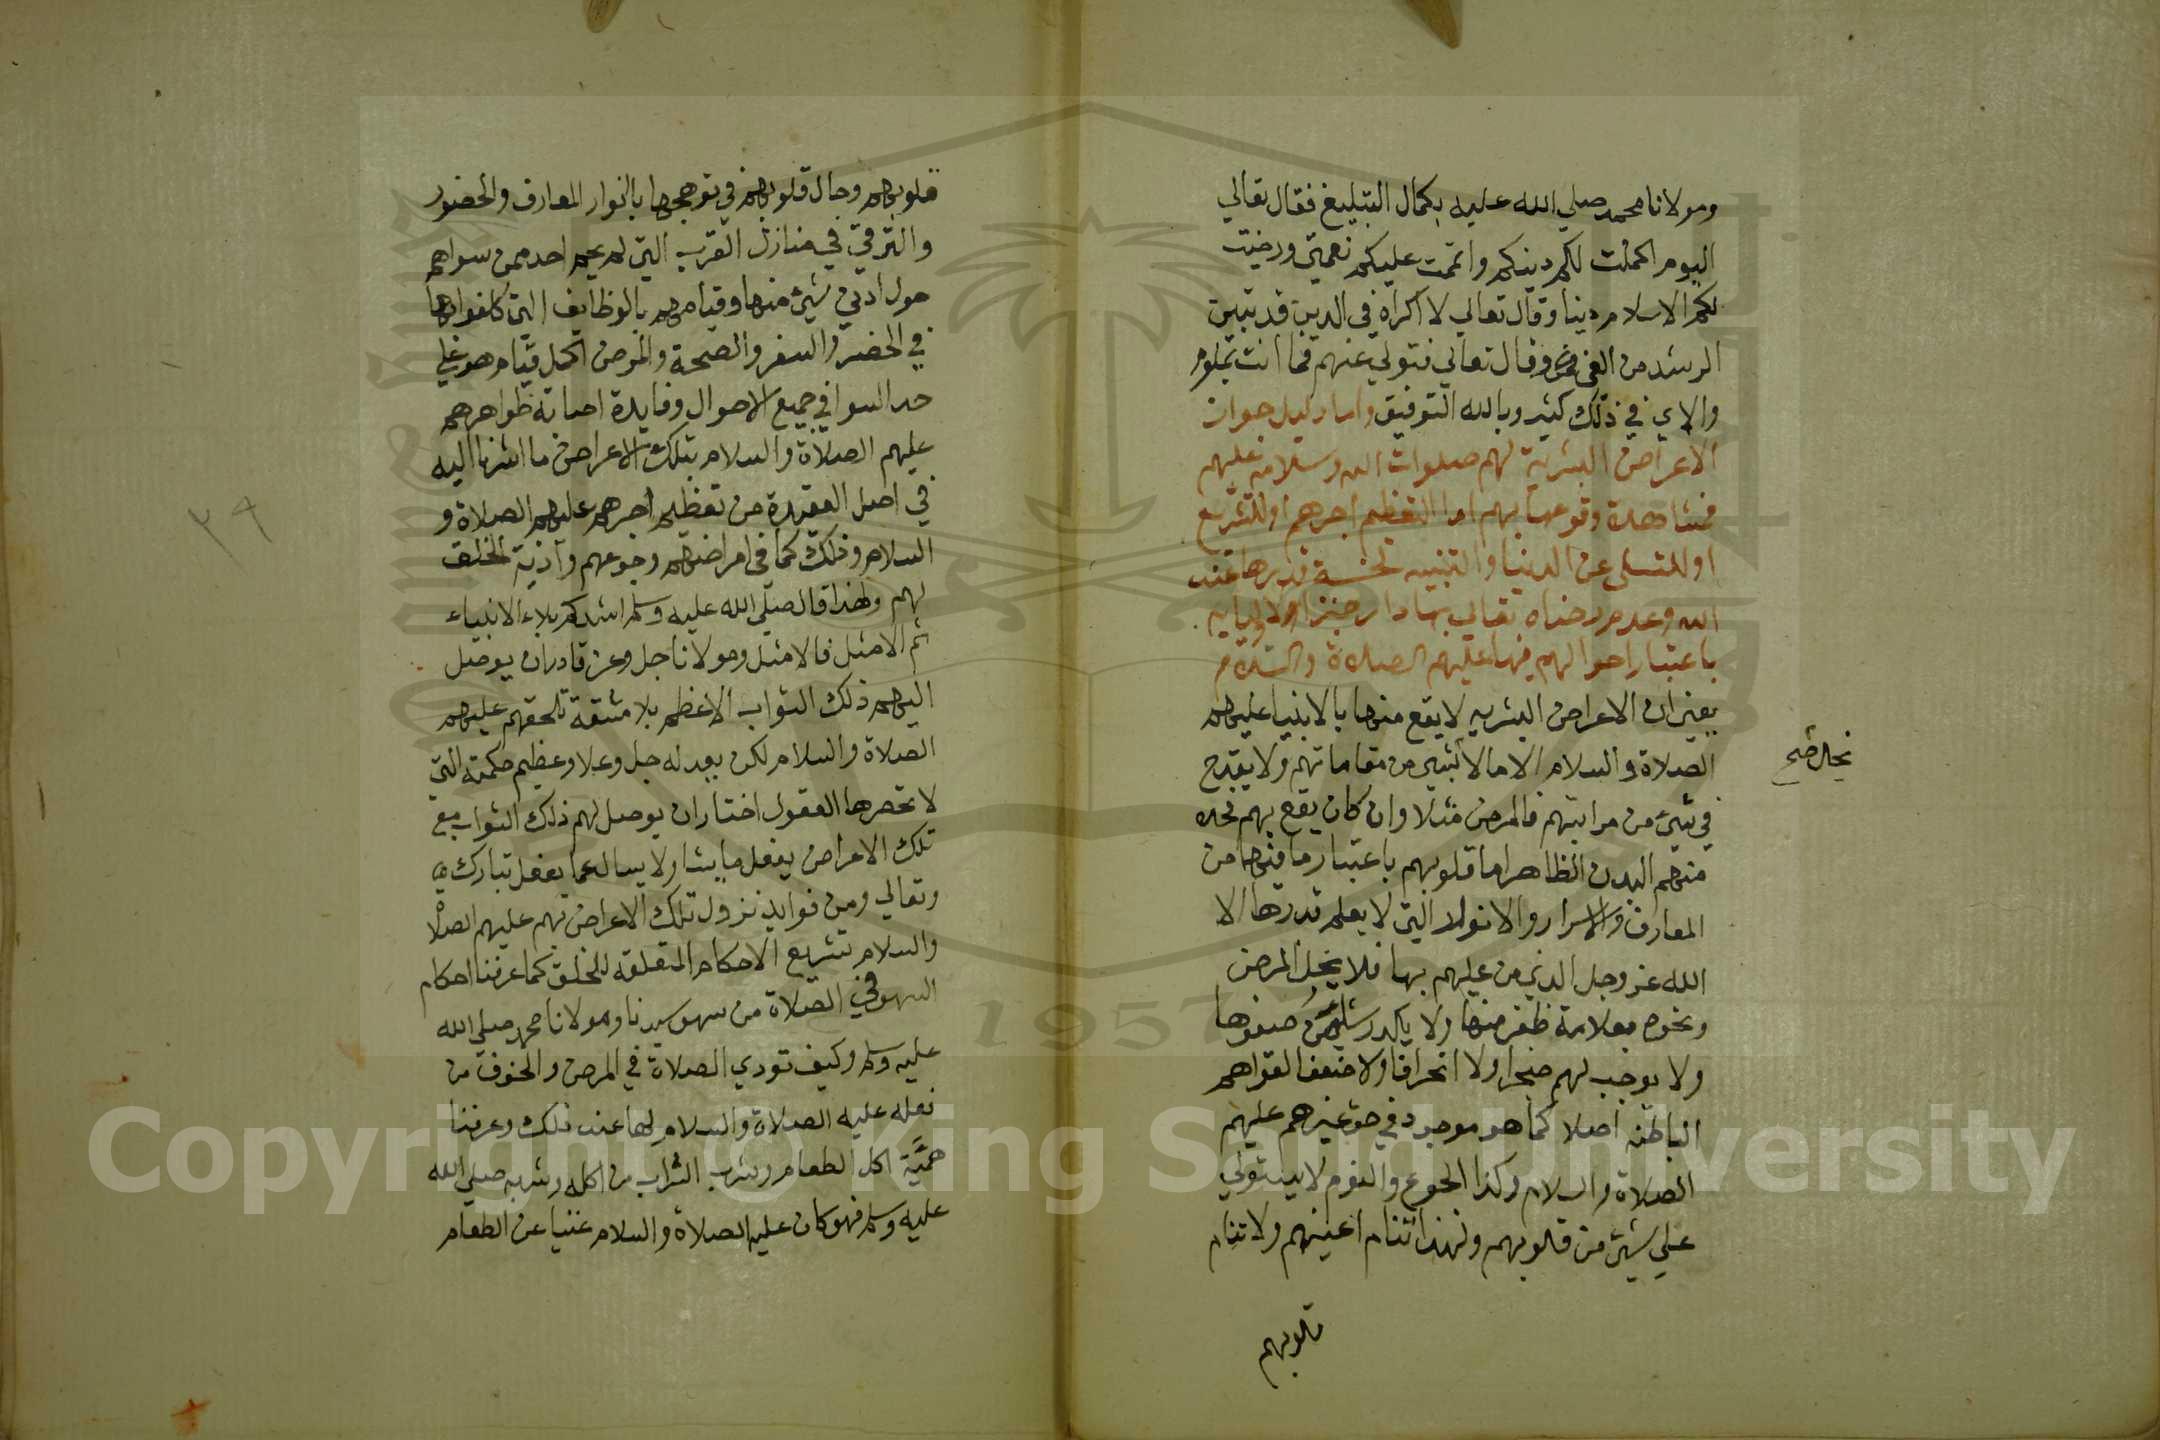 ومولانا محمد صلي الله عليه بكمال التبليغ فقال تعالي
اليوم اكملت لكم دينكم واتممت عليكم نعمتي ورضيت
لكم الاسلام دينا وقال تعالي لا اكراه في الدين قد تبين
الرشد من الغي وقال تعالي فتولي عنهم فما انت بملوم
والاي في ذلك كثير وبالله التوفيق واما دليل جواز
الاعراض البشرية لهم صلوات الله وسلامه عليهم
فمشاهدة وقوعها بهم اما التعظيم اجرهم او للتشريع
او للتسلي عن الدنيا والتنبيه لخسة قدرها عند
الله وعدم رضاه تعالي بها دار جزا لاوليايه
باعتبار احوالهم فيها عليهم الصلاة والسلام
يعني ان الاعراض البشريه لا يقع منها بالانبيا عليهم
الصلاة والسلام الا ما لا من مقاماتهم ولا يقدح
بحال صح
في شيء من مراتبهم فالمرض مثلا وان كان يقع بهم فحده
منهم البدن الظاهر اما قلوبهم باعتبار ما فيها من
المعارف والاسرار والانوار التي لا يعلم قدرها الا
الله عز وجل الذي من عليهم بها فلا يخل المرض
ونحوه بقلامة ظفر منها ولا يكدر شيا من صفوها
ولا يوجب لهم ضجرا ولا انحرافا ولا ضعفا لقواهم
الباطنه اصلا كما هو موجود في حق غيرهم عليهم
الصلاة والسلام وكذا الجوع والنوم لا يستولي
علي شيء من قلوبهم ولهذا تنام اعينهم ولا تنام
قلوبهم
قلوبهم وحال قلوبهم في توهجها بانوار المعارف والحضور
والترقي في منازل القرب التي لم يحم احد ممن سواهم
حول ادني شيء منها وقيامهم بالوظايف التي كلفوا بها
في الحضر والسفر والصحة والمرض اكمل قيام هو علي
حد السوا في جميع الاحوال وفايدة اصابة ظواهرهم
عليهم الصلاة والسلام بتلك الاعراض ما اشرنا اليه
في اصل العقيدة من تعظيم اجرهم عليهم الصلاة و
السلام وذلك كما في امراضهم وجوعهم واذية الخلق
لهم ولهذا قال صلي الله عليه وسلم اشدكم بلاء الانبياء
ثم الامثل فالامثل ومولانا جل وعز قادر ان يوصل
اليهم ذلك الثواب الاعظم بلا مشقة تلحقهم عليهم
الصلاة والسلام لكن بعدله جل وعلا وعظيم حكمته التي
لا تحصرها العقول اختار ان يوصل لهم ذلك الثواب مع
تلك الاعراض يفعل ما يشا ولا يسال عما يفعل تبارك
وتعالي ومن فوايد نزول تلك الاعراض بهم عليهم الصلا
والسلام تشريع الاحكام المتعلقه للخلق كما عرفنا احكام
السهو في الصلاة من سهو سيدنا ومولانا محمد صلي الله
عليه وسلم وكيف تودي الصلاة في المرض والخوف من
فعله عليه الصلاة والسلام لها عند ذلك وعرفنا
هيئة اكل الطعام وشرب الشراب من اكله وشربه صلي الله
عليه وسلم فهو كان عليه الصلاة والسلام غنيا عن الطعام
٣٩
Copyright © King Saud University
1957